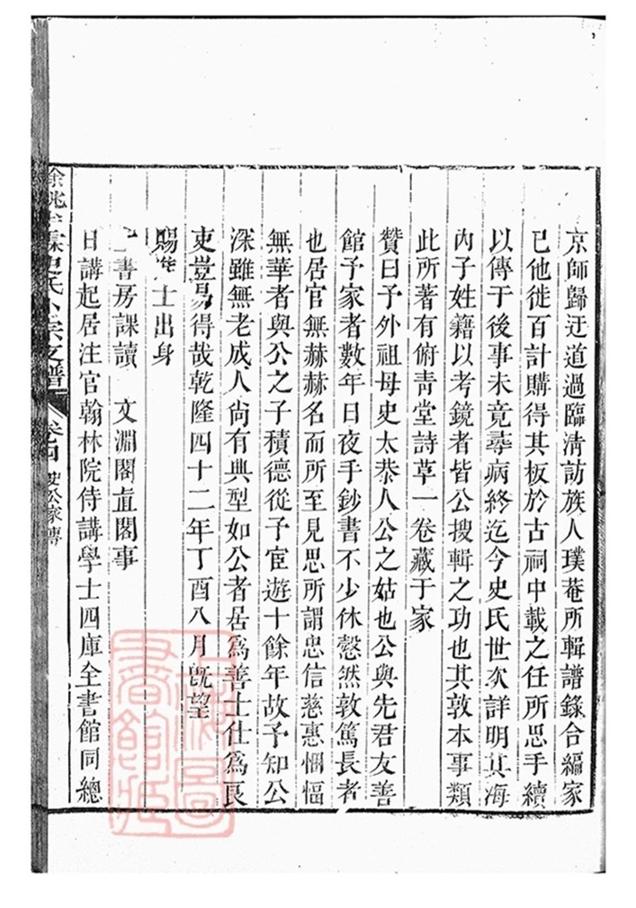 京師歸迂道過臨清訪族人璞菴所輯譜錄合編家
已他徙百計購得其板於古祠中載之任所思手續
以傳于後事未竟尋病終迄今史氏世次詳明其海
內子姓籍以考鏡者皆公搜輯之功也其敦本事類
此所著有俯青堂詩草一卷藏于家
贊曰予外祖母史太恭人公之姑也公與先君友善
館予家者數年日夜手鈔書不少休愨然敦篤長者
也居官無赫赫名而所至見思所謂忠信慈惠悃愊
無華者與公之子積德從子宦遊十餘年故予知公
深雖無老成人尚有典型如公者居為善士仕為良
吏豈易得哉乾隆四十二年丁酉八月旣望
賜進士出身
上書房課讀 文淵閣直閣事
日講起居注官翰林院侍講學士四庫全書館同總
余姚 史氏小宗支譜 卷四 家傳
上海圖書館藏